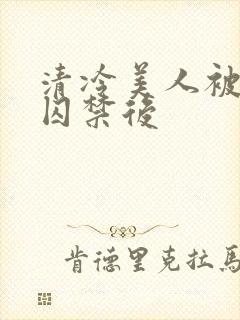 清冷美人被
囚禁後
肯德里克拉馬